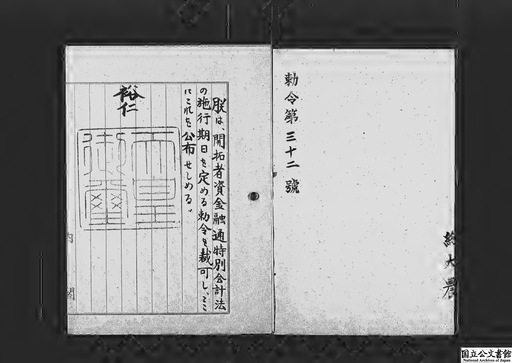 勅令第三十二號
總大農
朕は、開拓者資金融通特別会計法
の施行期日を定める勅令を裁可し、ここ
にこれを公布せしめる。
裕仁
天皇
御璽
内閣
国立公文書館
National Archives of Japan